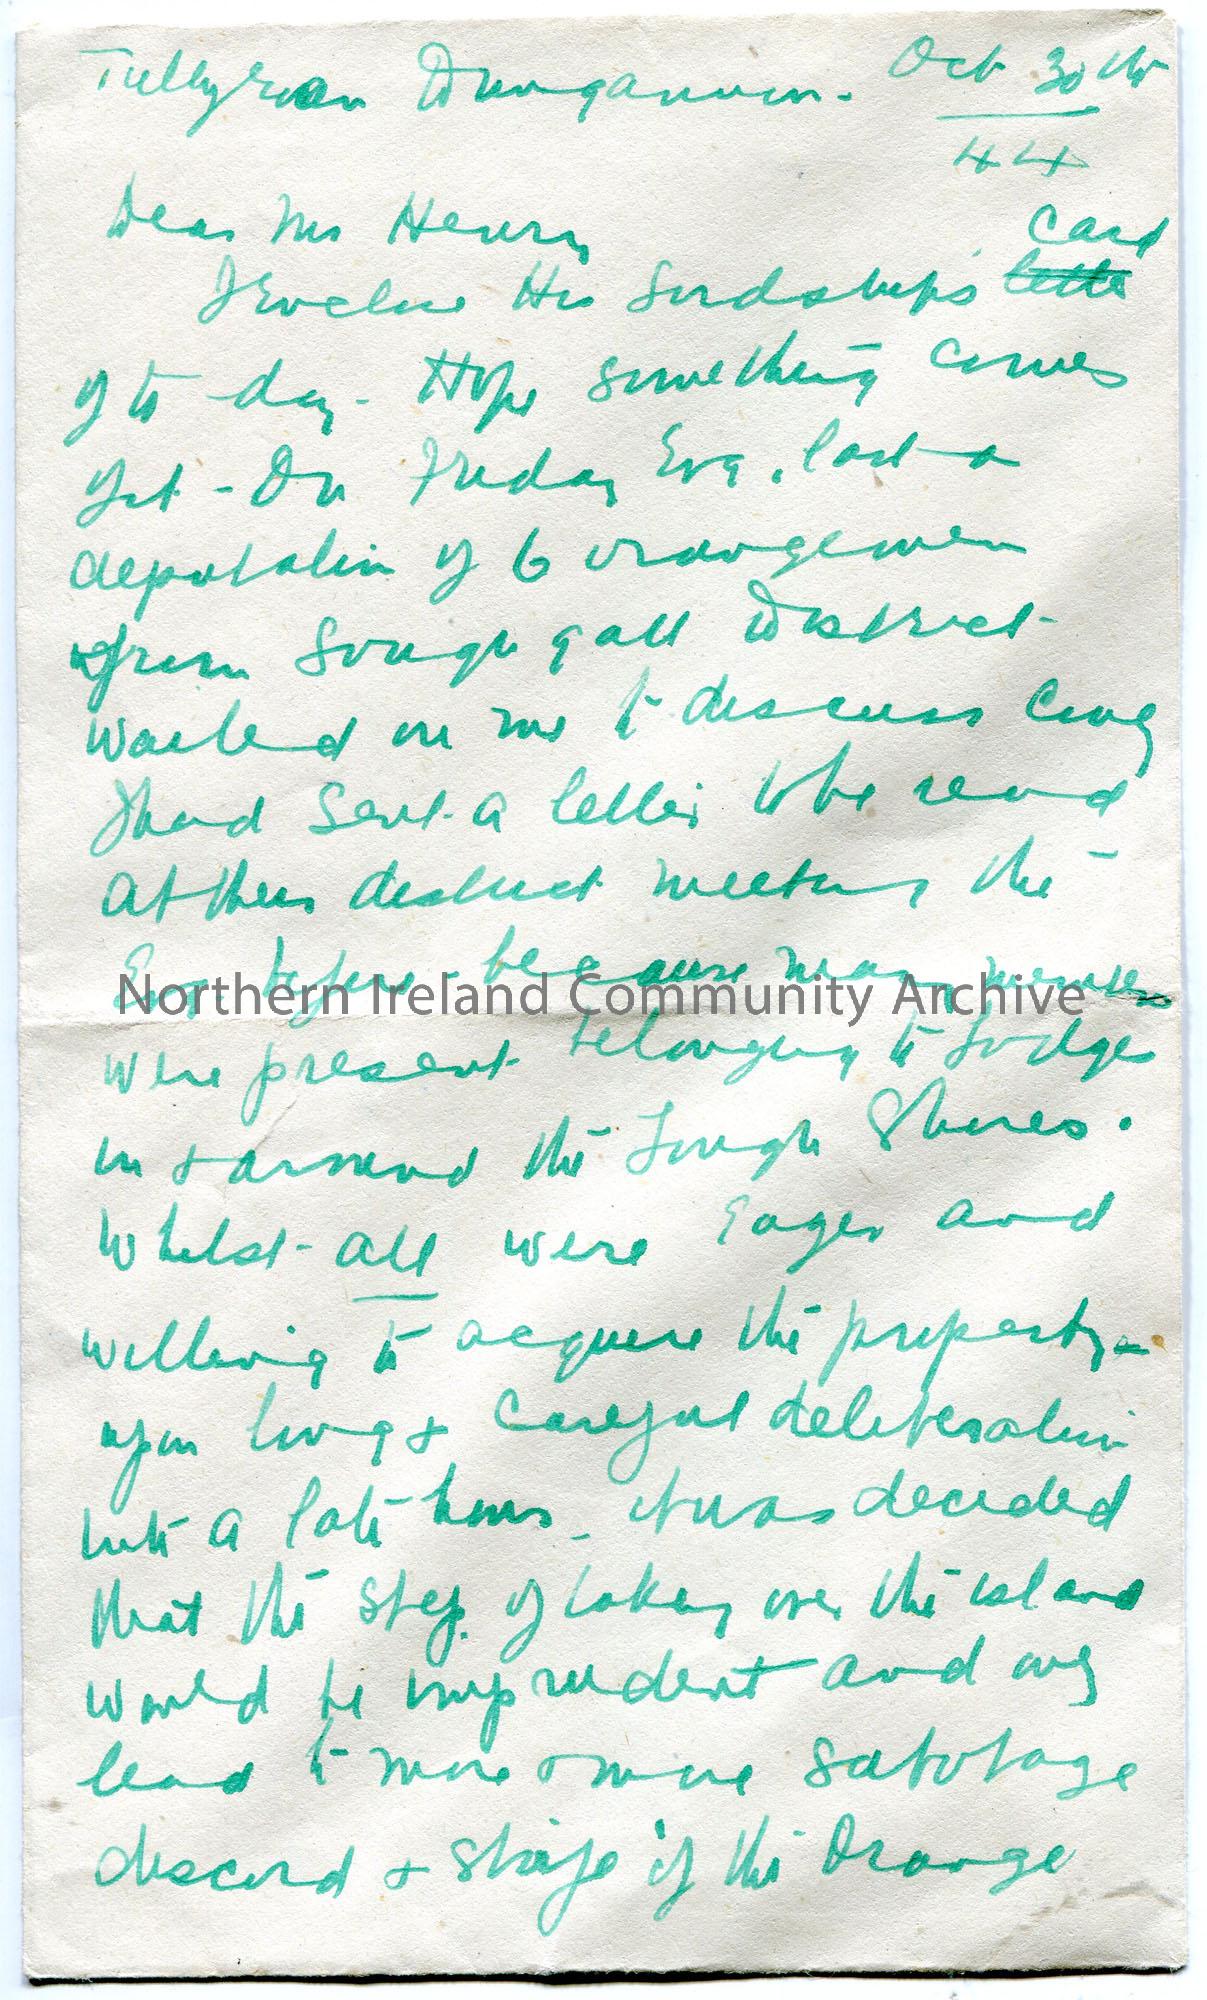 Tullyroan Dungannon. Oct 30th
44
Dear Mr Henry card
I enclose His Lordships letter
of to day. Hope something comes
yet - On Friday Evg. last a
deputation of 6 orangemen
from Loughgall District
waited on me to discuss
I had sent a letter to be read
at their district meeting the
Evg. before because many members
were present belonging to Lodges
in & around the Lough Shores.
Whilst all were Eager and
willing to acquire the property -
upon long & careful deliberation
into a late hour - it was decided
that the step of taking over the island
would be imprudent and only
lead to more & more sabotage
discord & strife if the Orange
Northern Ireland Community Archive